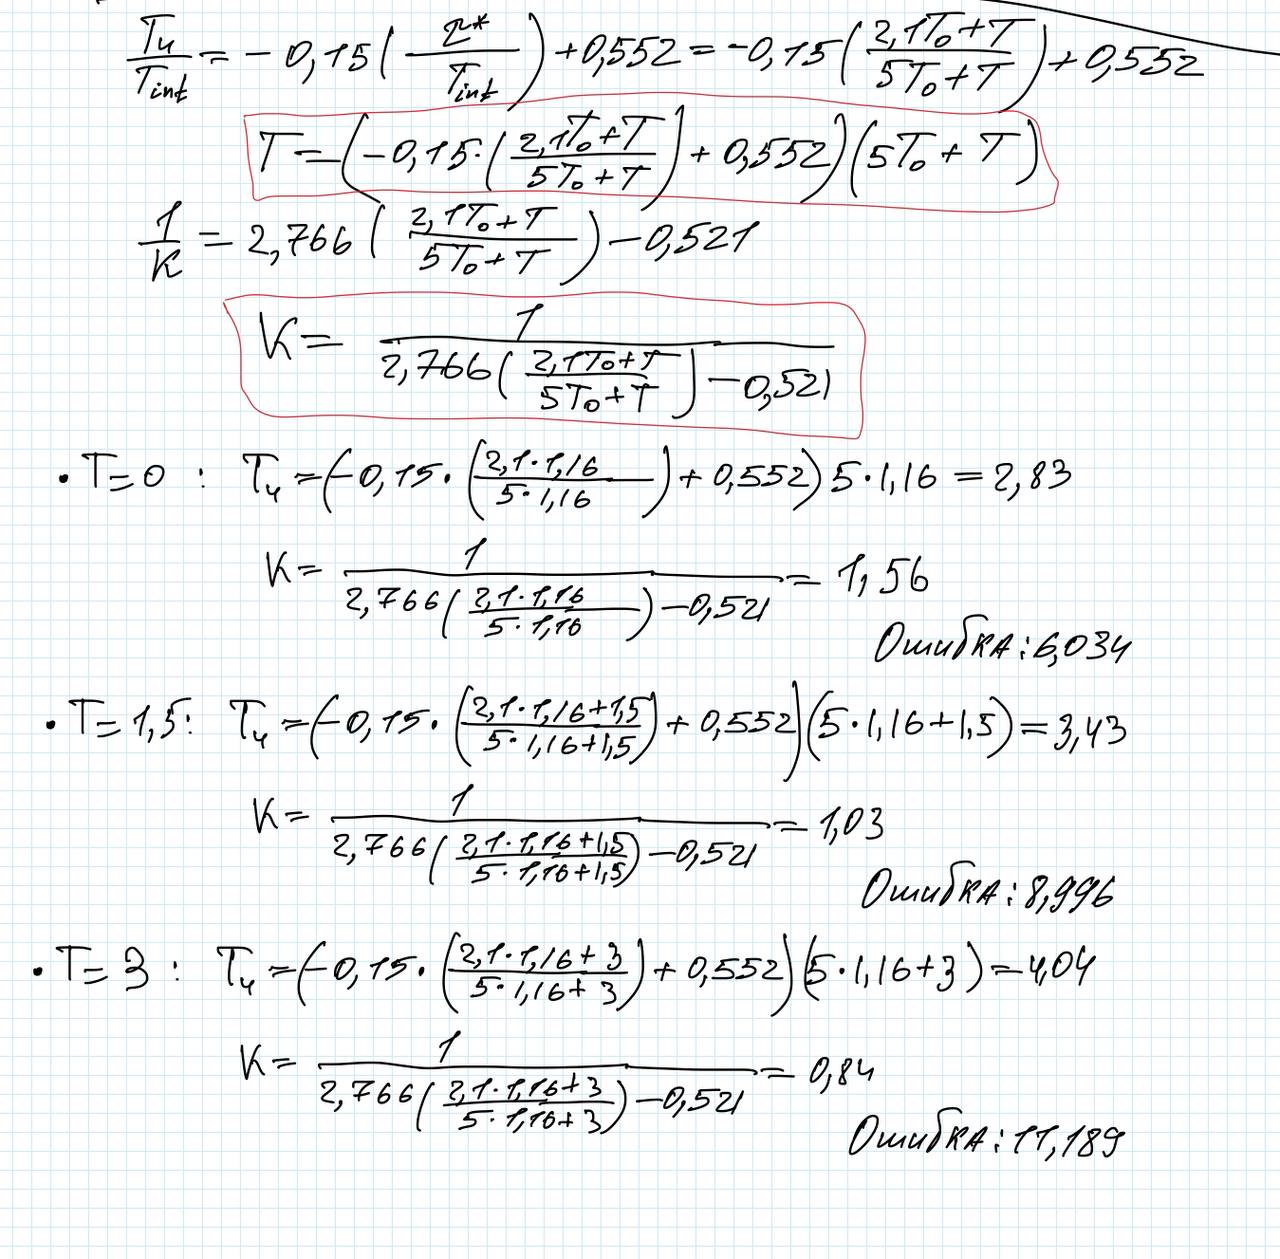 T₄/T_int = -0,15(τ*/T_int)+0,552 = -0,15((2,1T₀+T)/(5T₀+T))+0,552
T=(-0,15·((2,1T₀+T)/(5T₀+T))+0,552)(5T₀+T)
1/K = 2,766((2,1T₀+T)/(5T₀+T))-0,521
K= 1/(2,766((2,1T₀+T)/(5T₀+T))-0,521)
· T=0 : T₄=(-0,15·((2,1·1,16)/(5·1,16))+0,552)5·1,16 = 2,83
K= 1/(2,766((2,1·1,16)/(5·1,16))-0,521) = 1,56
Ошибка: 6,034
· T=1,5: T₄=(-0,15·((2,1·1,16+1,5)/(5·1,16+1,5))+0,552)(5·1,16+1,5)=3,43
K= 1/(2,766((2,1·1,16+1,5)/(5·1,16+1,5))-0,521) = 1,03
Ошибка: 8,996
· T=3 : T₄=(-0,15·((2,1·1,16+3)/(5·1,16+3))+0,552)(5·1,16+3)=4,04
K= 1/(2,766((2,1·1,16+3)/(5·1,16+3))-0,521) = 0,84
Ошибка: 11,189